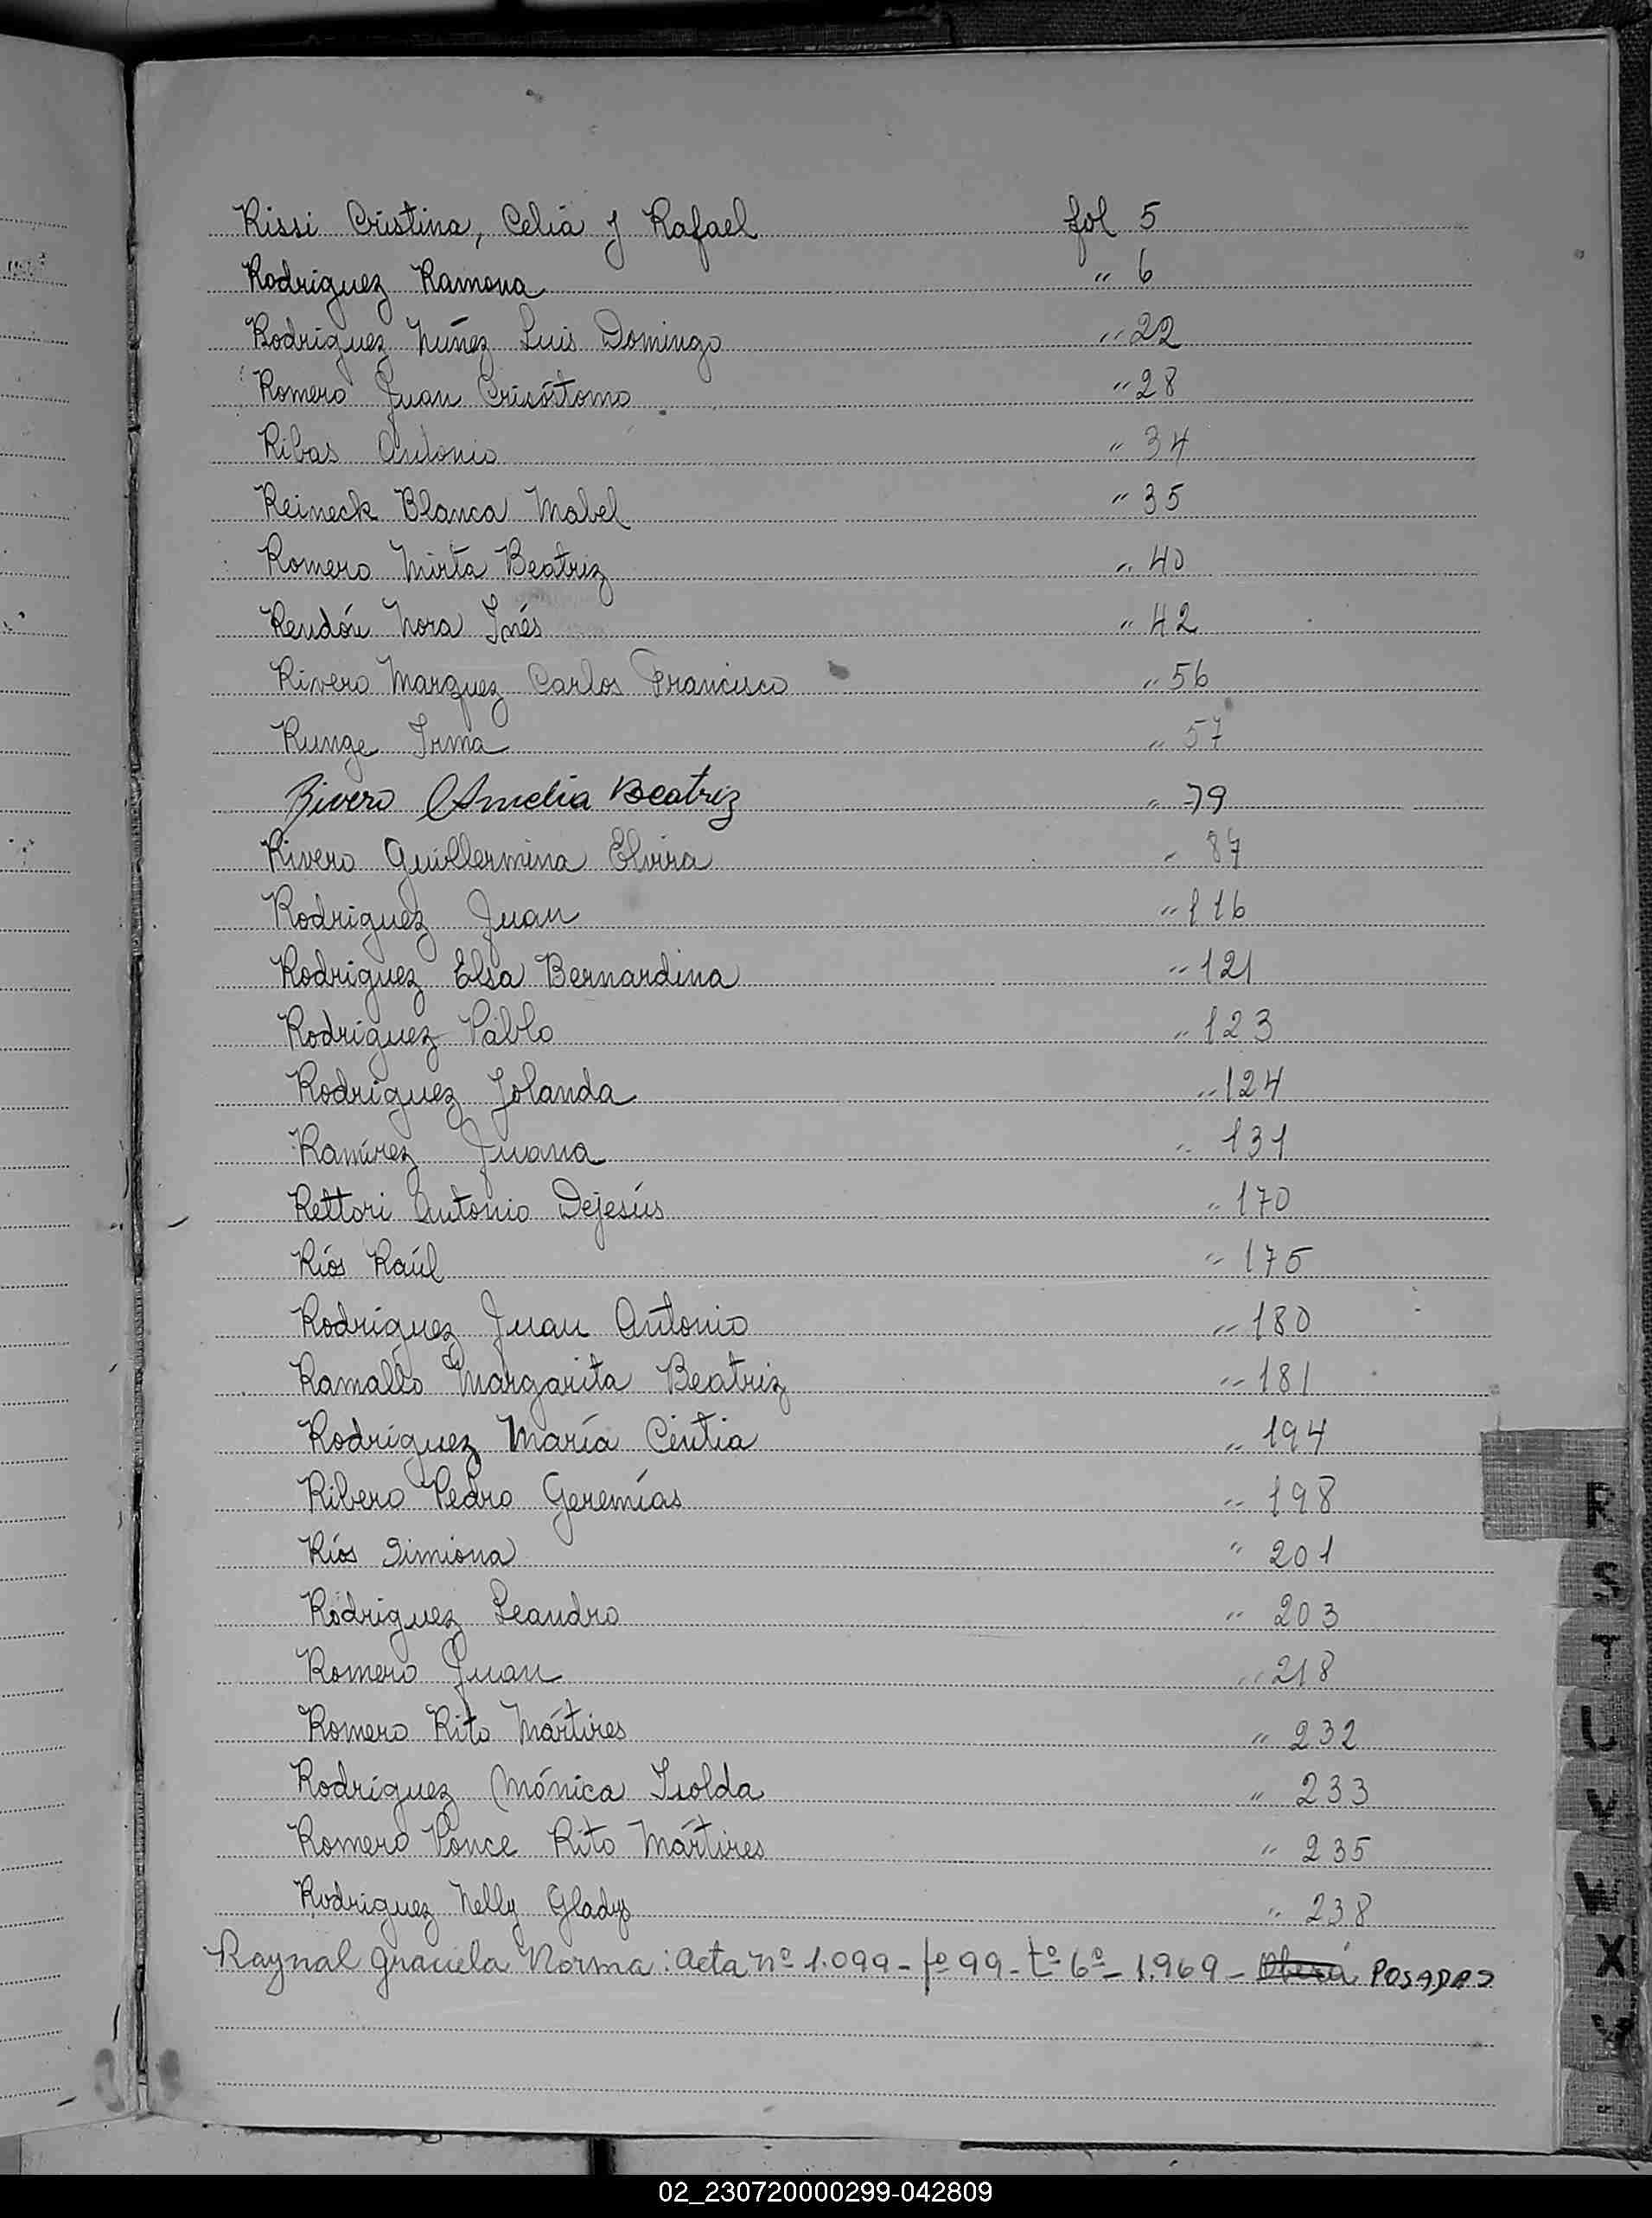 Rissi Cristina, Celia y Rafael fol 5
Rodriguez Ramona " 6
Rodriguez Núñez Luis Domingo " 22
Romero Juan Crisóstomo " 28
Ribas Antonio " 34
Reineck Blanca Mabel " 35
Romero Mirta Beatriz " 40
Rendón Nora Inés " 42
Rivero Marquez Carlos Francisco " 56
Runge Irma " 57
Rivero Amelia Beatriz " 79
Rivero Guillermina Elvira " 87
Rodriguez Juan " 116
Rodriguez Elsa Bernardina " 121
Rodriguez Pablo " 123
Rodriguez Jolanda " 124
Ramírez Juana " 131
Rettori Antonio Dejesús " 170
Ríos Raúl " 175
Rodríguez Juan Antonio " 180
Ramallo Margarita Beatriz " 181
Rodríguez María Cintia " 194
Ribero Pedro Geremías " 198
Ríos Simiona " 201
Rodriguez Leandro " 203
Romero Juan " 218
Romero Rito Mártires " 232
Rodríguez Mónica Isolda " 233
Romero Ponce Rito Mártires " 235
Rodriguez Nelly Gladys " 238
Raynal Graciela Norma: Acta nº 1.099 - fº 99 - tº 6º - 1.969 - Oberá POSADAS
R
S
T
U
V
W
X
Y
02_230720000299-042809